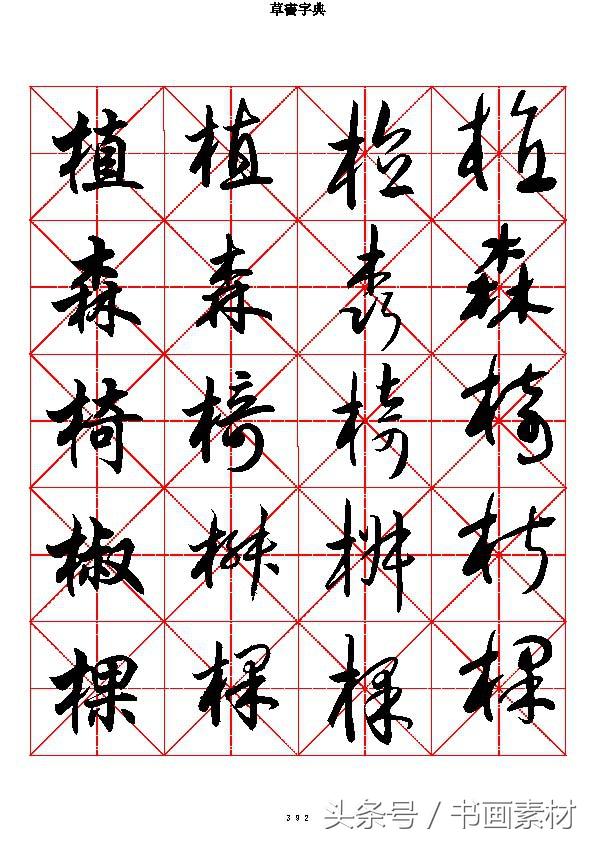 草書字典
植植植植
森森森森
椅椅椅椅
椒椒椒椒
棵棵棵棵
392
头条号/书画素材